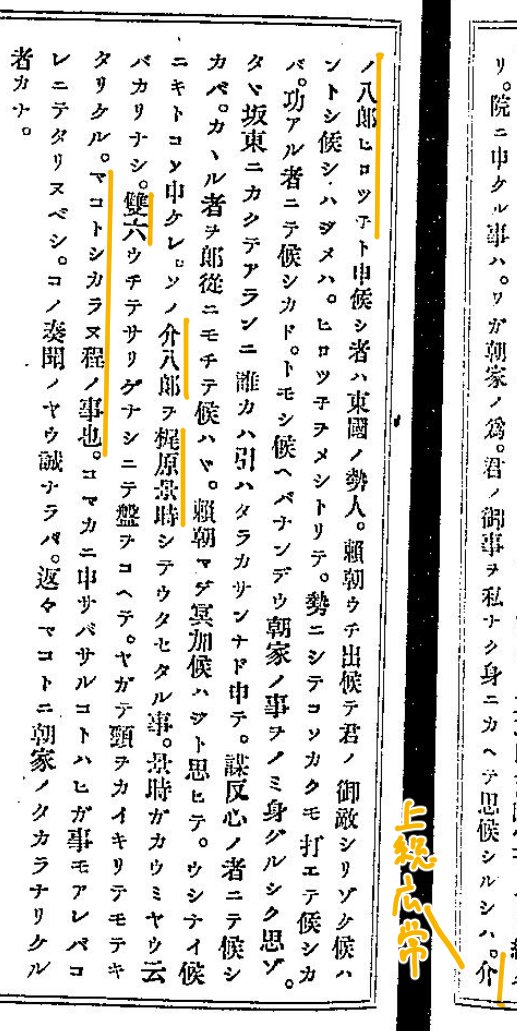 リ。院ニ申ケル事ハ。ワガ朝家ノ爲。君ノ御事ヲ私ナク身ニカヘテ思候シルシハ。介
ノ八郎ヒロツ子ト申候シ者ハ東國ノ勢人。賴朝ウチ出候テ君ノ御敵シリゾケ候ハ
ントシ候シハヂメハ。ヒロツ子ヲメシトリテ。勢ニシテコソカクモ打エテ候シカ
バ。功アル者ニテ候シカド。トモシ候ヘバナンデウ朝家ノ事ヲノミ身グルシク思ゾ。
タヾ坂東ニカクテアランニ誰カハ引ハタラカサンナド申テ。謀反心ノ者ニテ候シ
カバ。カヽル者ヲ郎從ニモチテ候ハヾ。賴朝マデ冥加候ハジト思ヒテ。ウシナイ候
ニキトコソ申ケレ。ソノ介八郎ヲ梶原景時シテウタセタル事。景時ガカウミヤウ云
バカリナシ。雙六ウチテサリゲナシニテ盤ヲコヘテ。ヤガテ頸ヲカイキリテモテキ
タリケル。マコトシカラヌ程ノ事也。コマカニ申サバサルコトハヒガ事モアレバコ
レニテタリヌベシ。コノ奏聞ノヤウ誠ナラバ。返々マコトニ朝家ノタカラナリケル
者カナ。
上総広常